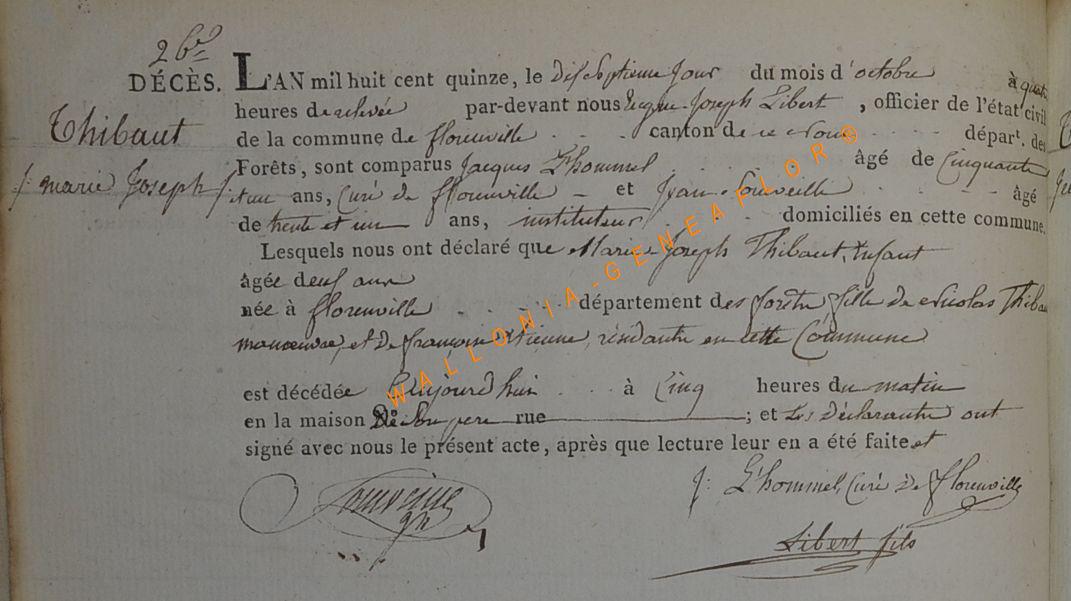 26e
DÉCÈS.
Thibaut
/: marie Joseph /:
L'AN mil huit cent quinze, le dix Septieme Jour du mois d'octobre à quatre
heures de relevée par-devant nous Joseph Libert, officier de l'état civil
de la commune de florenville canton de ce nom départ. des
Forêts, sont comparus Jacques L'hommel âgé de Cinquante
ans, Curé de florenville et Jean âgé
de trente et un ans, instituteur domiciliés en cette commune.
Lesquels nous ont déclaré que Marie Joseph Thibaut, Enfant
âgée deux ans
née à florenville département des forêts fille de Nicolas Thibau
manoeuvre, et de françoise Etienne, résidante en cette Commune
est décédée aujourd'hui à Cinq heures du matin
en la maison de Son pere rue ; et Les déclarants ont
signé avec nous le présent acte, après que lecture leur en a été faite et
J: L'hommel, Curé de florenville
Libert fils
WALLONIA-GENEAFLORE